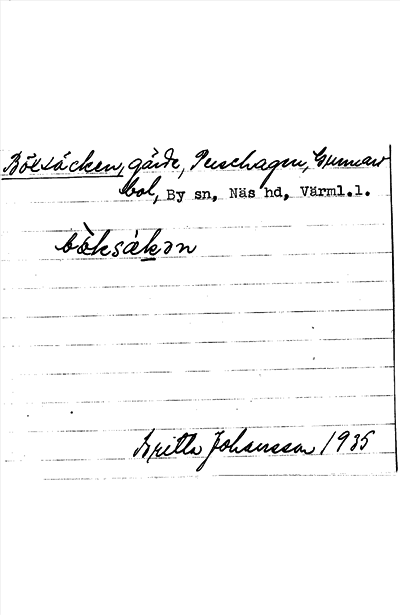 Böksäcken, gärde, Perschagen, Gunnars
bol, By sn, Näs hd, Värml.l.
bö̀ksæ̀kən
Britta Johansson 1935